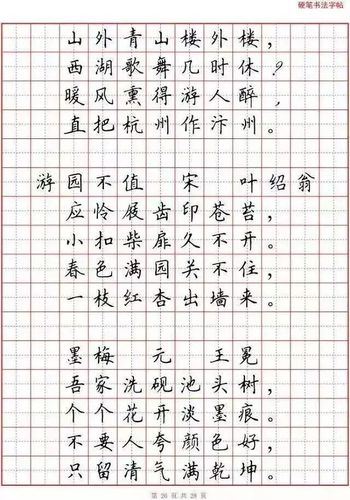 硬笔书法字帖
山外青山楼外楼，
西湖歌舞几时休？
暖风熏得游人醉，
直把杭州作汴州。
游园不值 宋 叶绍翁
应怜屐齿印苍苔，
小扣柴扉久不开。
春色满园关不住，
一枝红杏出墙来。
墨梅 元 王冕
吾家洗砚池头树，
个个花开淡墨痕。
不要人夸颜色好，
只留清气满乾坤。
第 26 页 共 28 页